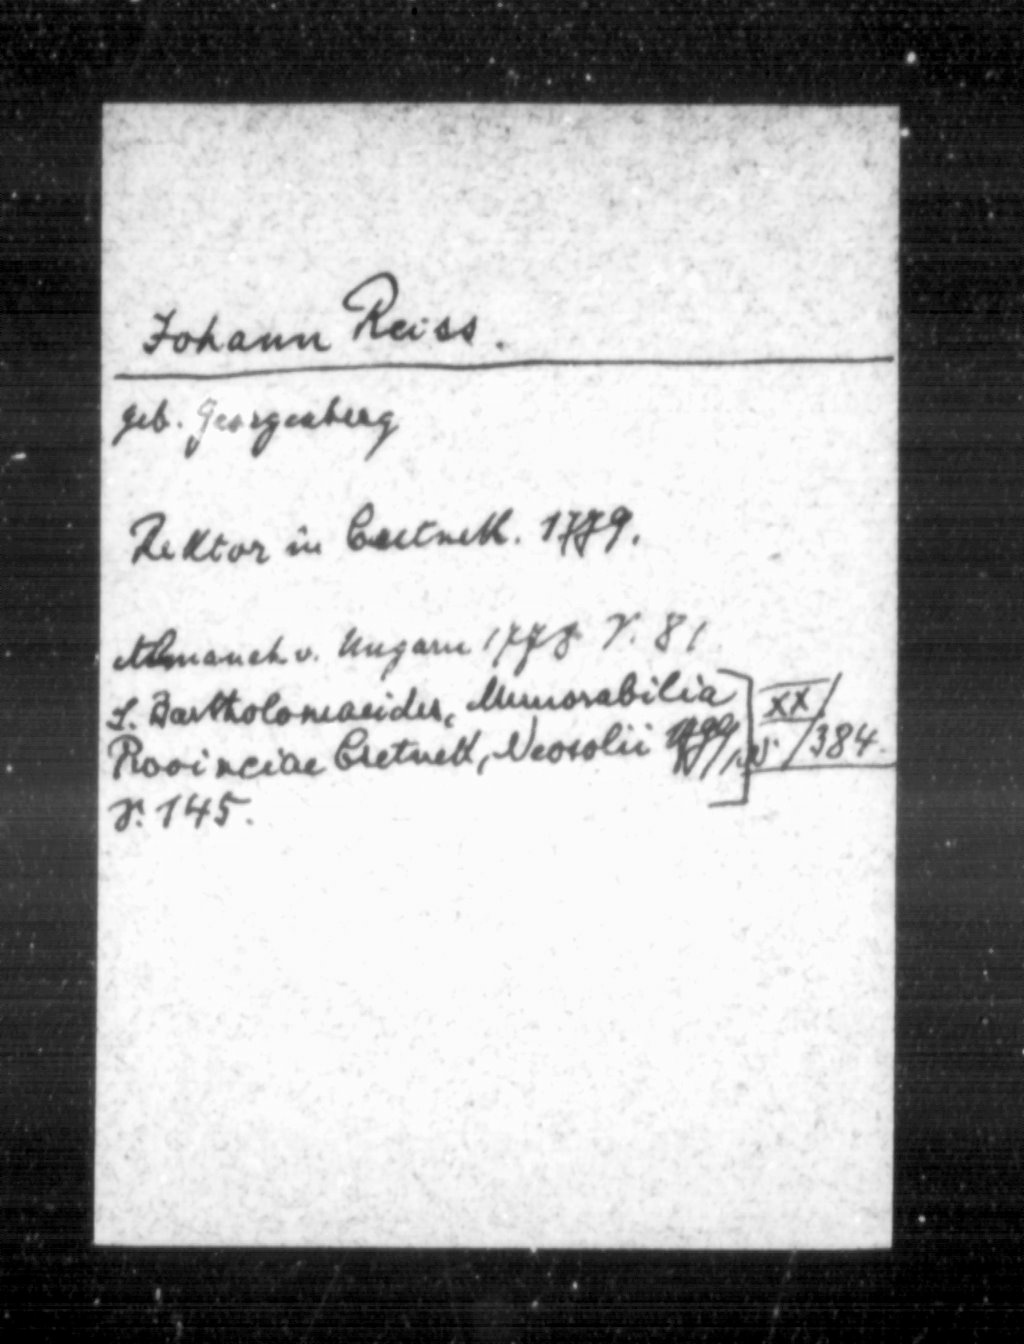 Johann Reiss.
geb. Georgenberg
Rektor in Csetnek. 1779.
Almanach v. Ungarn 1778. S. 81
L. Bartholomaeides, Memorabilia
Provinciae Csetnek, Neosolii 1799,
S. 145.
XX/
384.